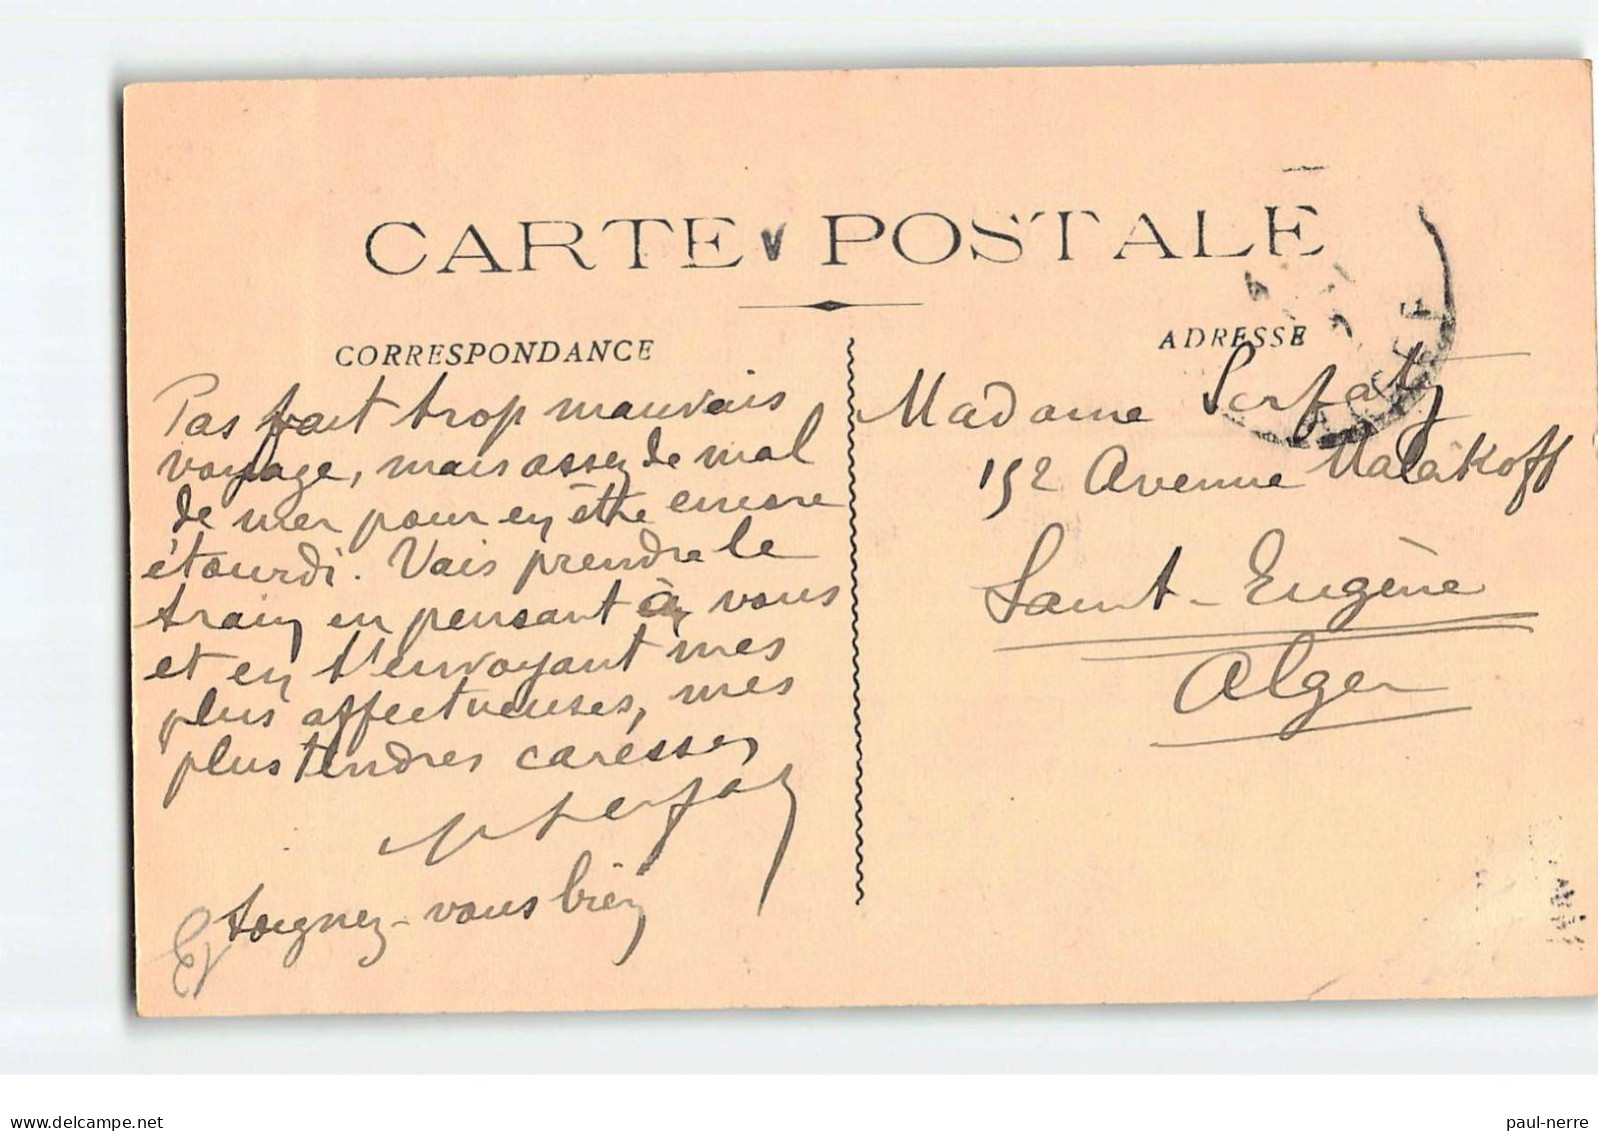 CARTE POSTALE
CORRESPONDANCE
Pas fait trop mauvais
voyage, mais assez de mal
de mer pour en être encore
étourdi. Vais prendre le
train en pensant à vous
et en t'envoyant mes
plus affectueuses, mes
plus tendres caresses
Soignez-vous bien
ADRESSE
Madame Serfaty
152 Avenue Malakoff
Saint-Eugène
Alger
www.delcampe.net
paul-nerre